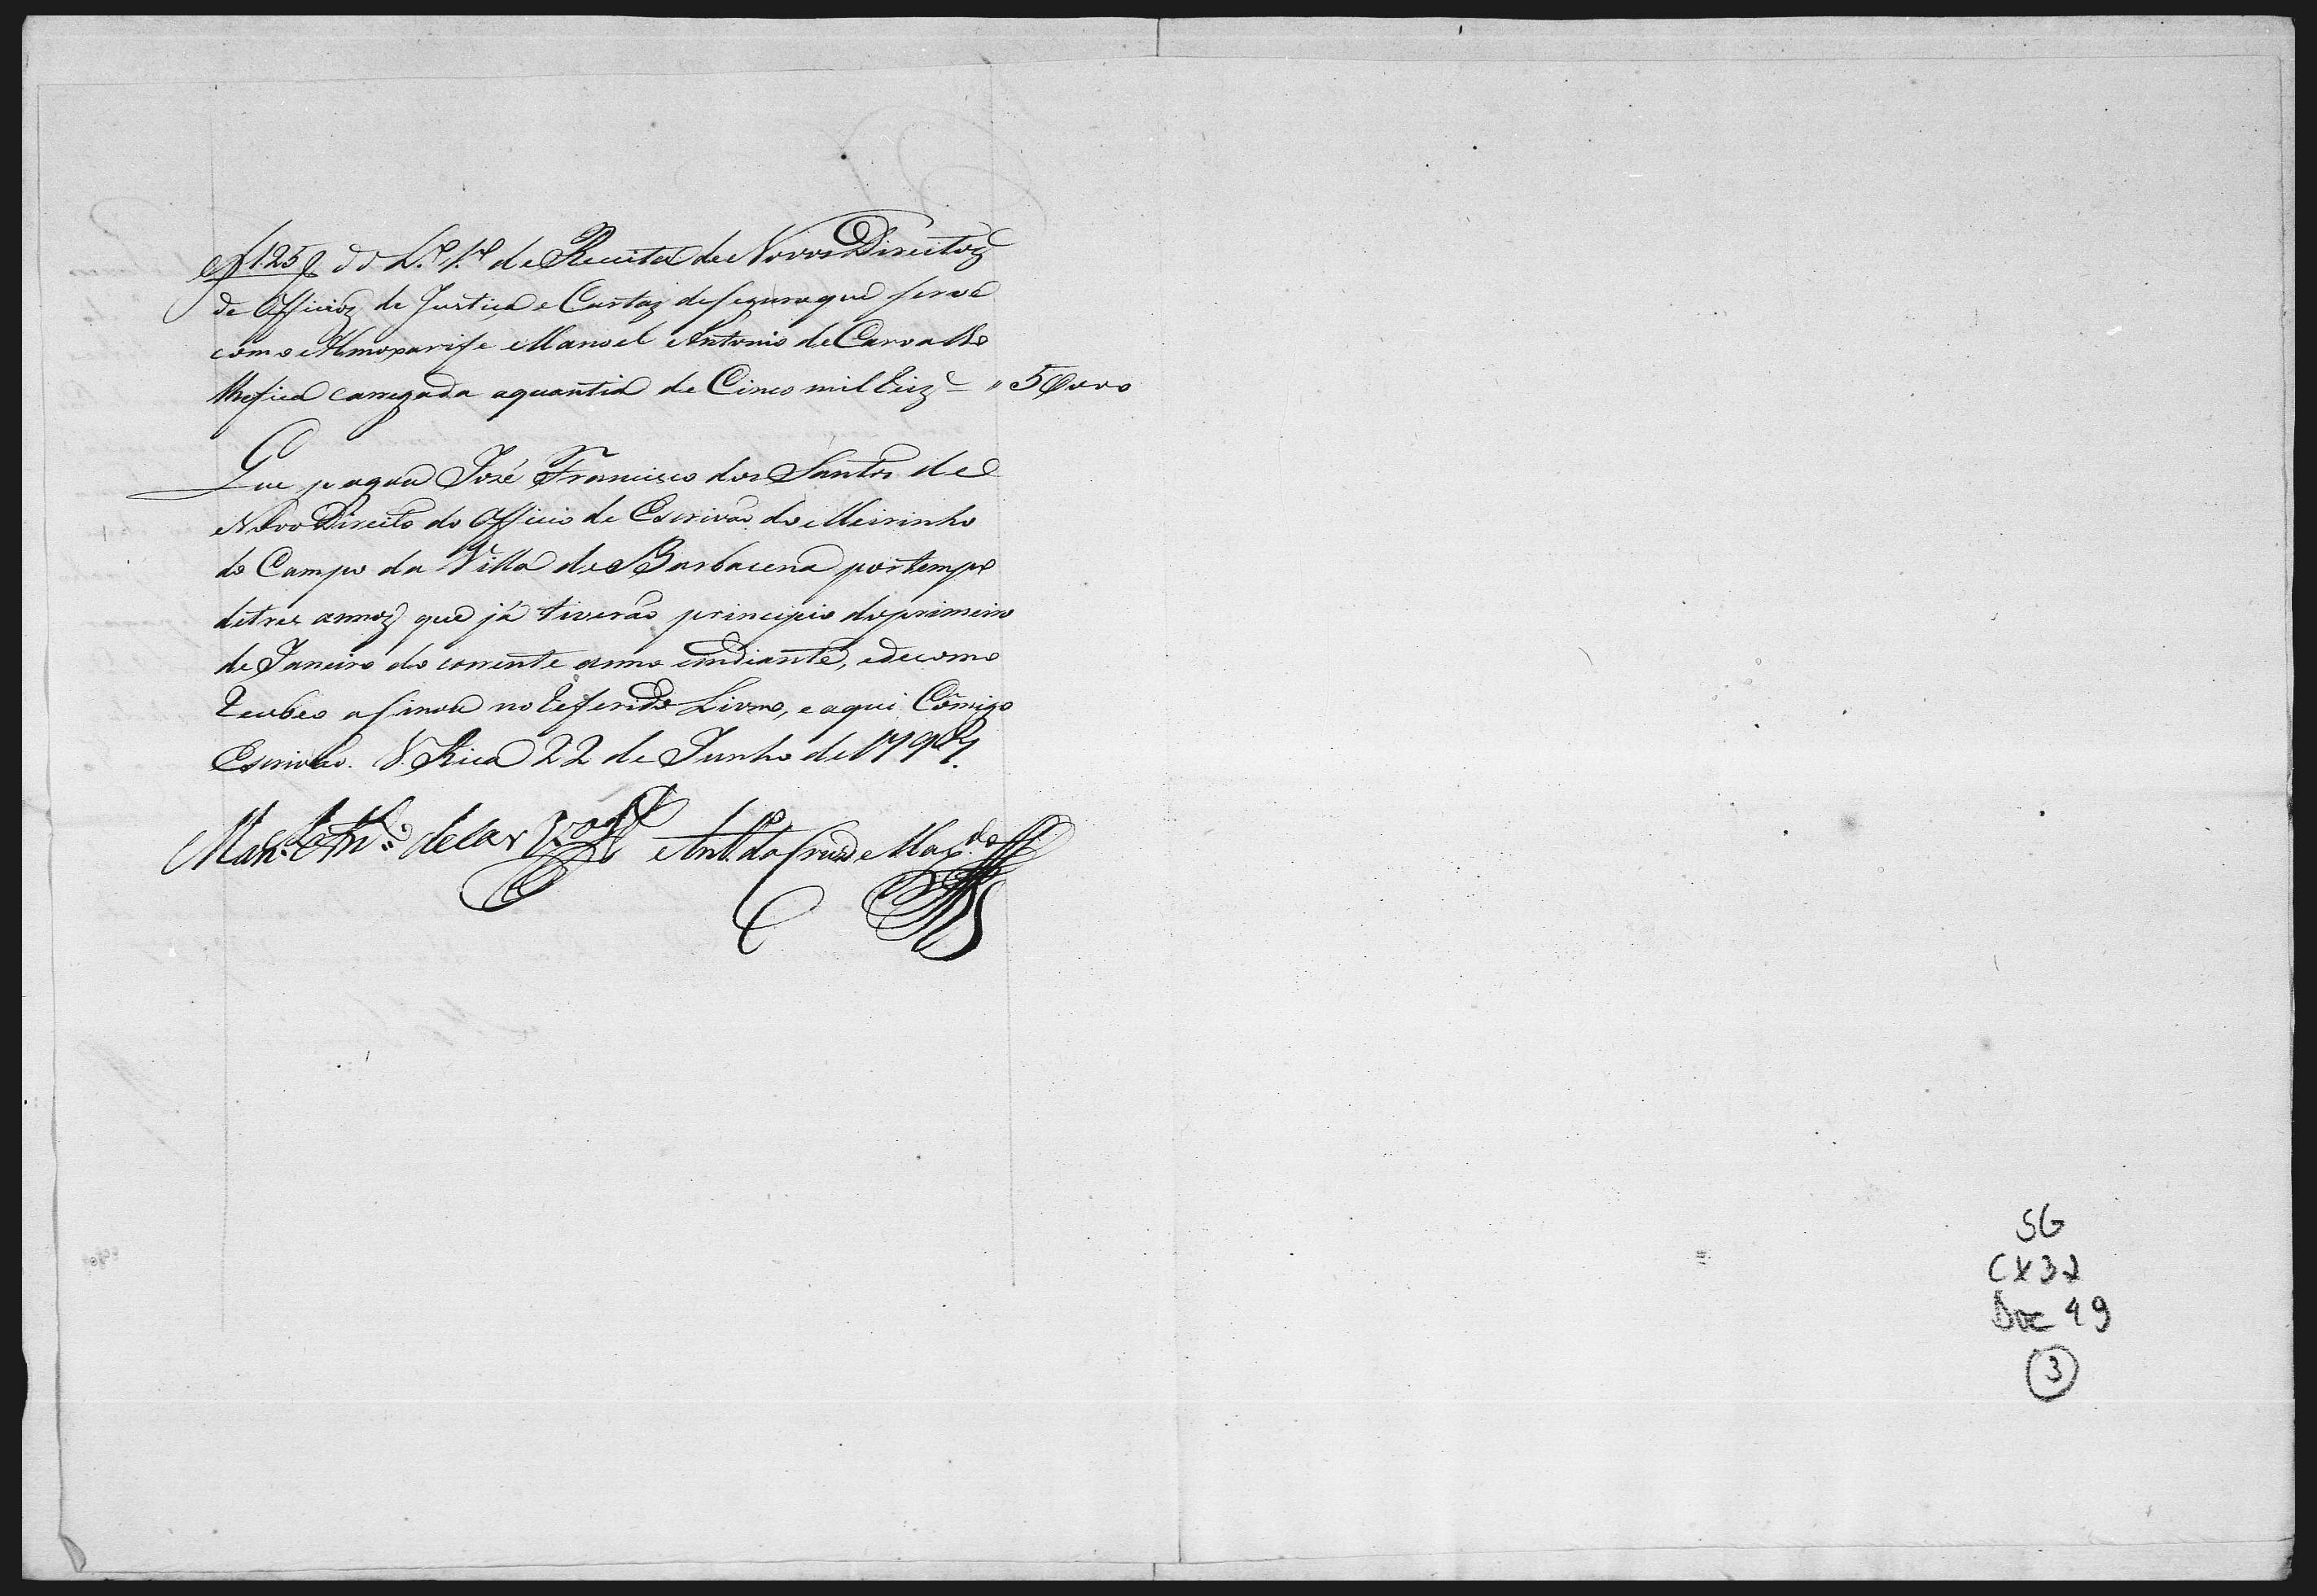 Af 125 do L.º 1.º de Receita de Novos Direitos
de Officios de Justiça e Cartas de seguro que serve
com o Almoxarife Manoel Antonio de Carvalho
lhe fica carregada a quantia de Cinco mil reis - " 5$000
Que pagou José Francisco dos Santos de
Novo Direito do Officio de Escrivão do Meirinho
do Campo da Villa de Barbacena por tempo
de tres annos que já tiverão principio do primeiro
de Janeiro do corrente anno em diante, e de como
recebeo asinou no referido Livro, e aqui Cõmigo
Escrivão. V. Rica 22 de Junho de
Man.el Ant.º de Carv.º
Ant.º da Cruz e Mach.do
SG
CX 37
Doc 49
3